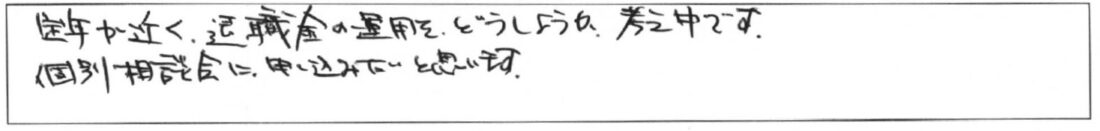 定年が近く、退職金の運用を、どうしようか、考え中です。
個別相談会に、申し込みたいと思います。